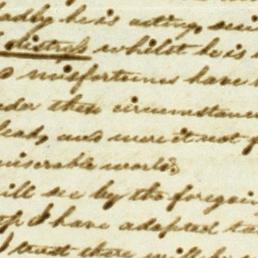 badly he is acting,
distress whilst he is
misfortunes have
these circumstance
and were it not f
miserable world,
ill see by the foregoin
I have adopted
I trust there will be